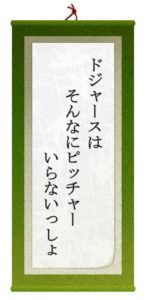 ドジャースは
そんなにピッチャー
いらないっしょ